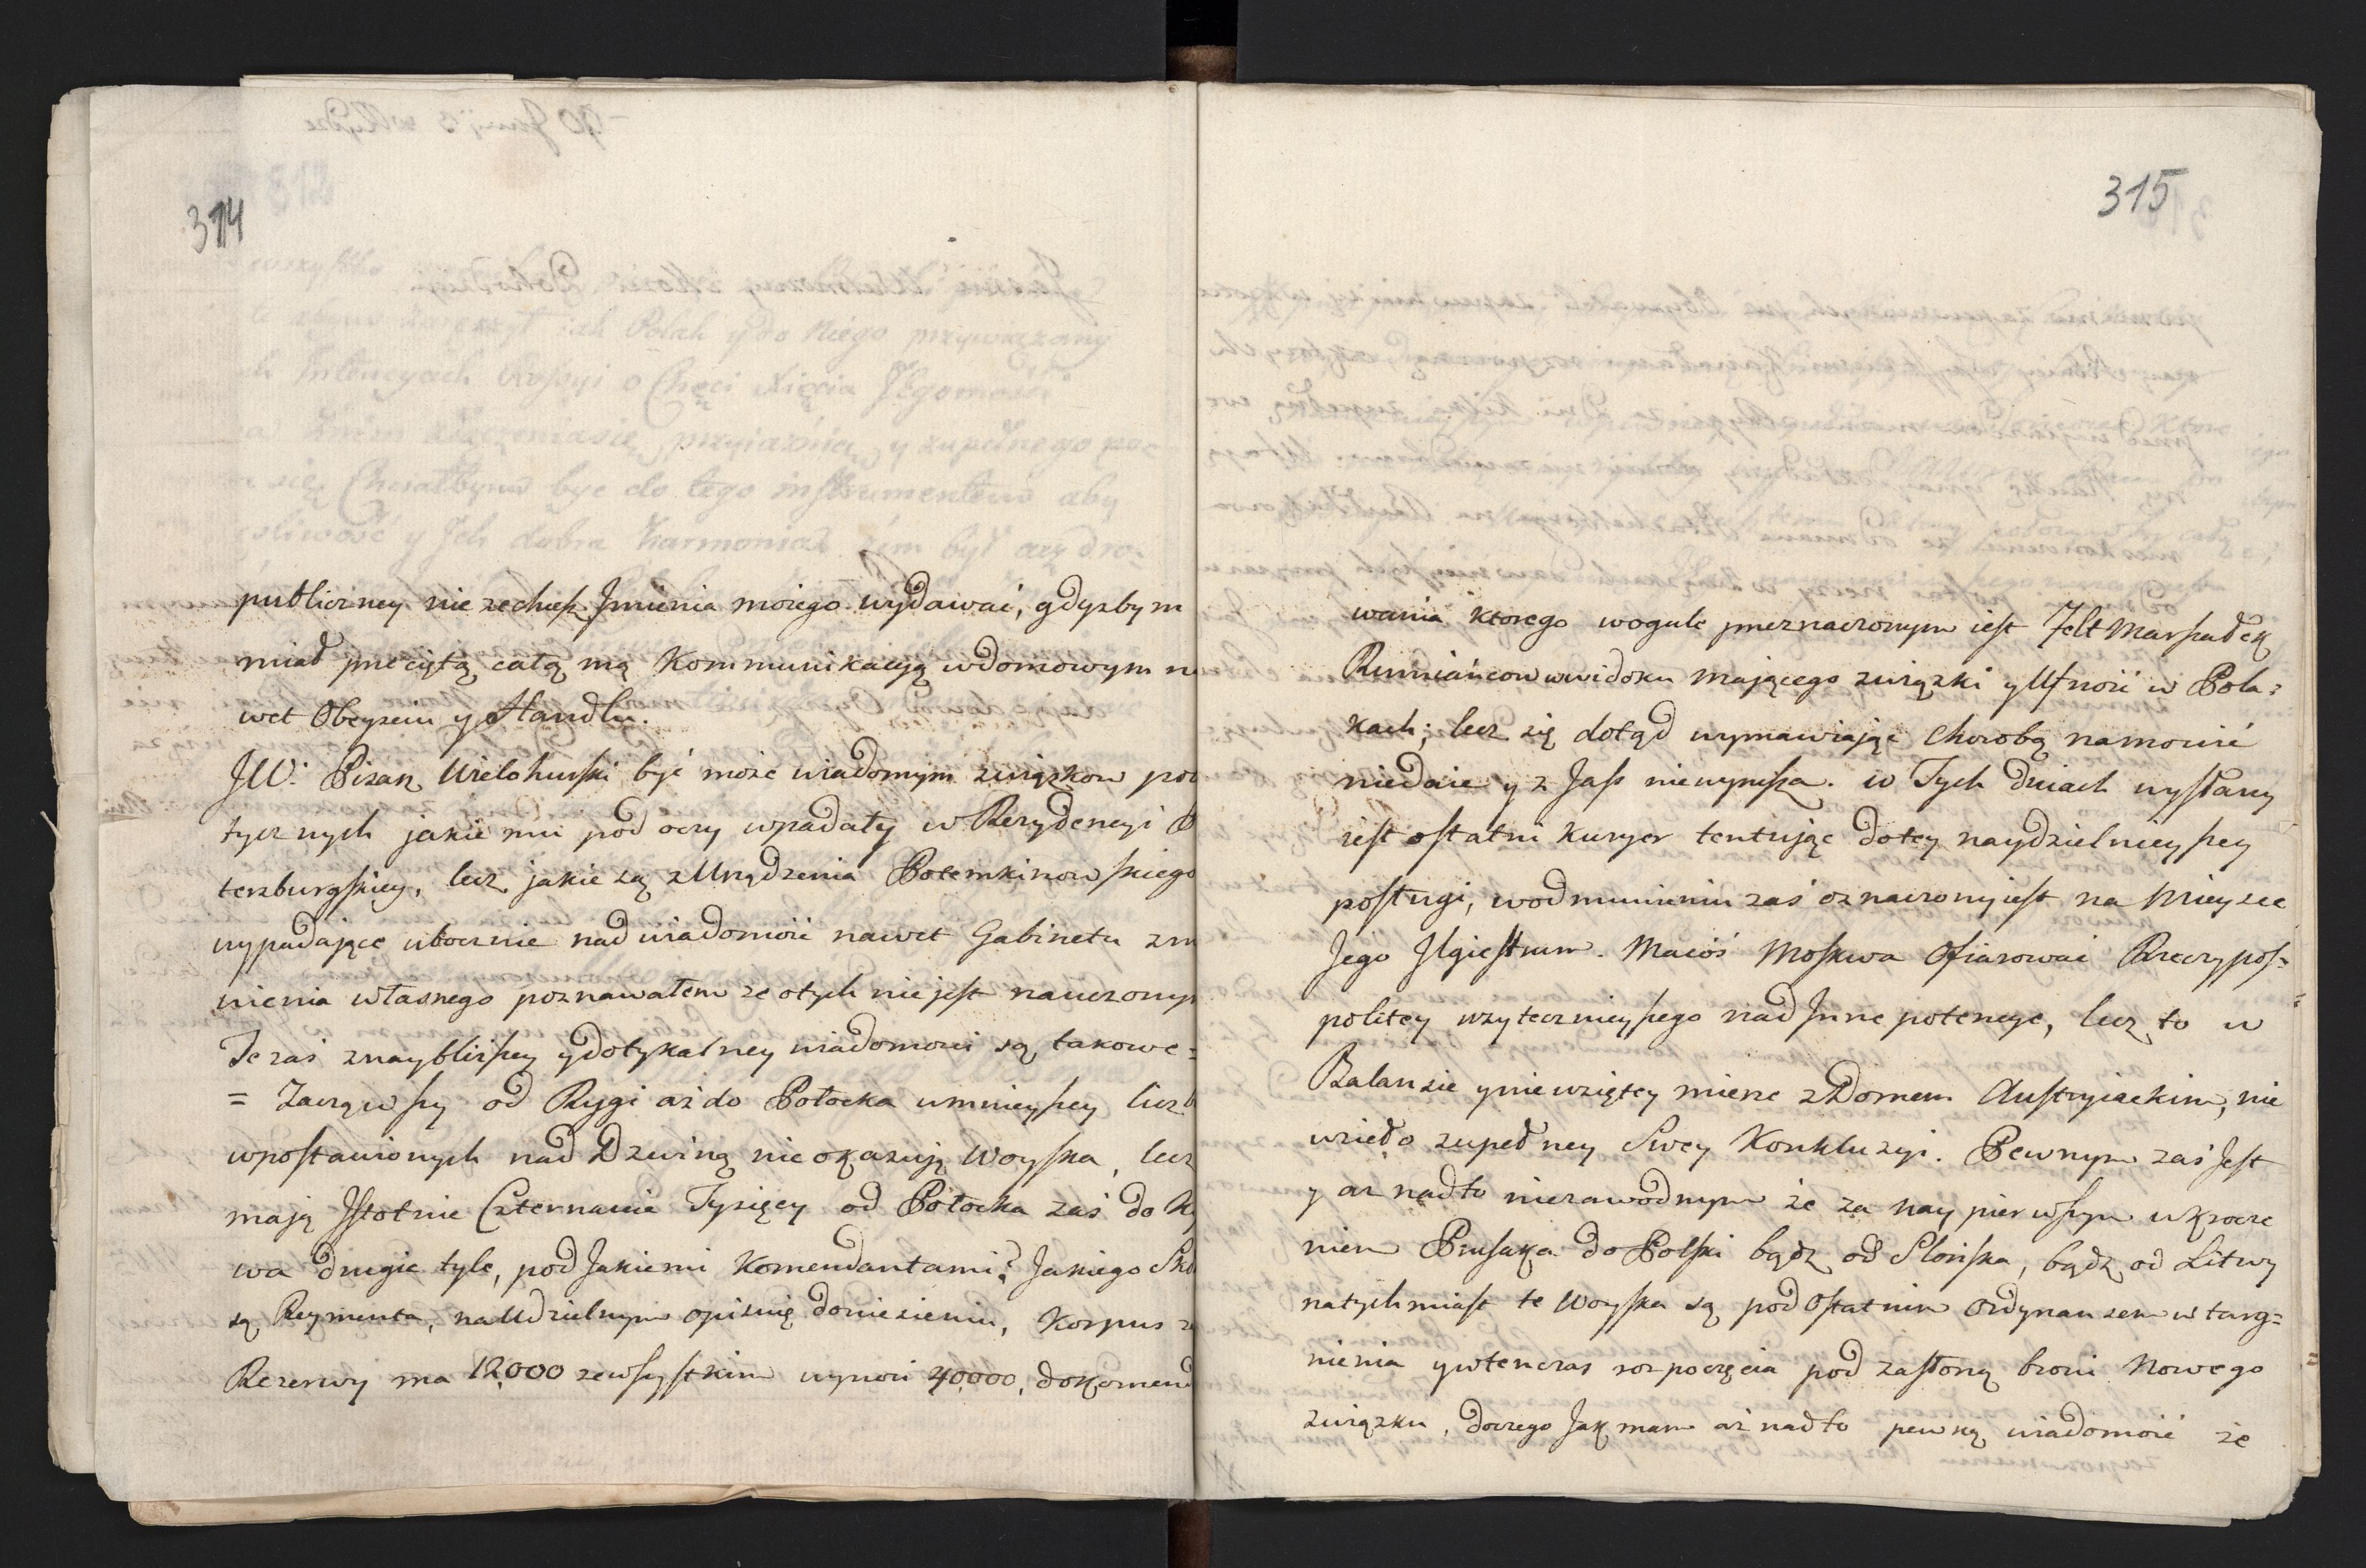 314
publiczney nie zechcesz Jmienia moiego wydawać, gdyzbym
miał przeciętą całą mą Kommunikacyą w domowym na
wet Obeysciu y Handlu.
JW. Pisarz Wielohurski być może wiadomym związkow poli
tycznych jakie mu pod oczy wpadały w Rezydencyi P
terzburgskiey, lecz jakie są z Urządzenia Potemkinowskiego
wypadające ubocznie nad wiadomość nawet Gabinetu z
nienia własnego poznawałem ze o tych nie jest nauczonym
Te zaś z naybliższey y dotykalney wiadomosci są takowe =
= Zacząwszy od Rygi aż do Połocka w mnieyszey liczb
w postawionych nad Dzwiną nie okazują Woyska, lecz
mają Jstotnie Czternascie Tysięcy od Połocka zaś do Ky
wa drugie tyle, pod Jakiemi Komendantami? Jakiego Skł
są Reymenta, na Udzielnym opiszuię doniesieniu, Korpus
Rezerwy ma 12,000 ze wszystkim wynosi 40,000, do Komend
315
wania ktorego wogule przeznaczonym iest Felt Marszałek
Rumiańcow w widoku mającego związki y Ufność w Pola=
kach; lecz się dotąd wymawiając chorobą namowić
niedaie y z Jass niewyrusza. w Tych dniach wysłany
iest ostatni Kuryer tentując do tey naydzielnieyszey
posługi, w odmuwieniu zaś oznaczony iest na Mieysce
Jego Jlgiestrum. Macoś Moskwa Ofiarować Rzeczypos=
politey uzytecznieyszego nad Jnne potencye, lecz to w
Balansie y nie wziętey mierze z Domem Austryiackim, nie
wzieło zupełney Swey Konkluzyi. Pewnym zaś Jest
y aż nadto niezawodnym że za nay pierwszym wkrocze
niem Prusaka do Polski bądź od Slońska, bądź od Litwy
natychmiast te Woyska są pod ostatnim Ordynansem wtarg=
nienia y wtenczas rozpoczęcia pod zasłoną broni Nowego
związku, do czego Jak mam aż nadto pewną wiadomość że